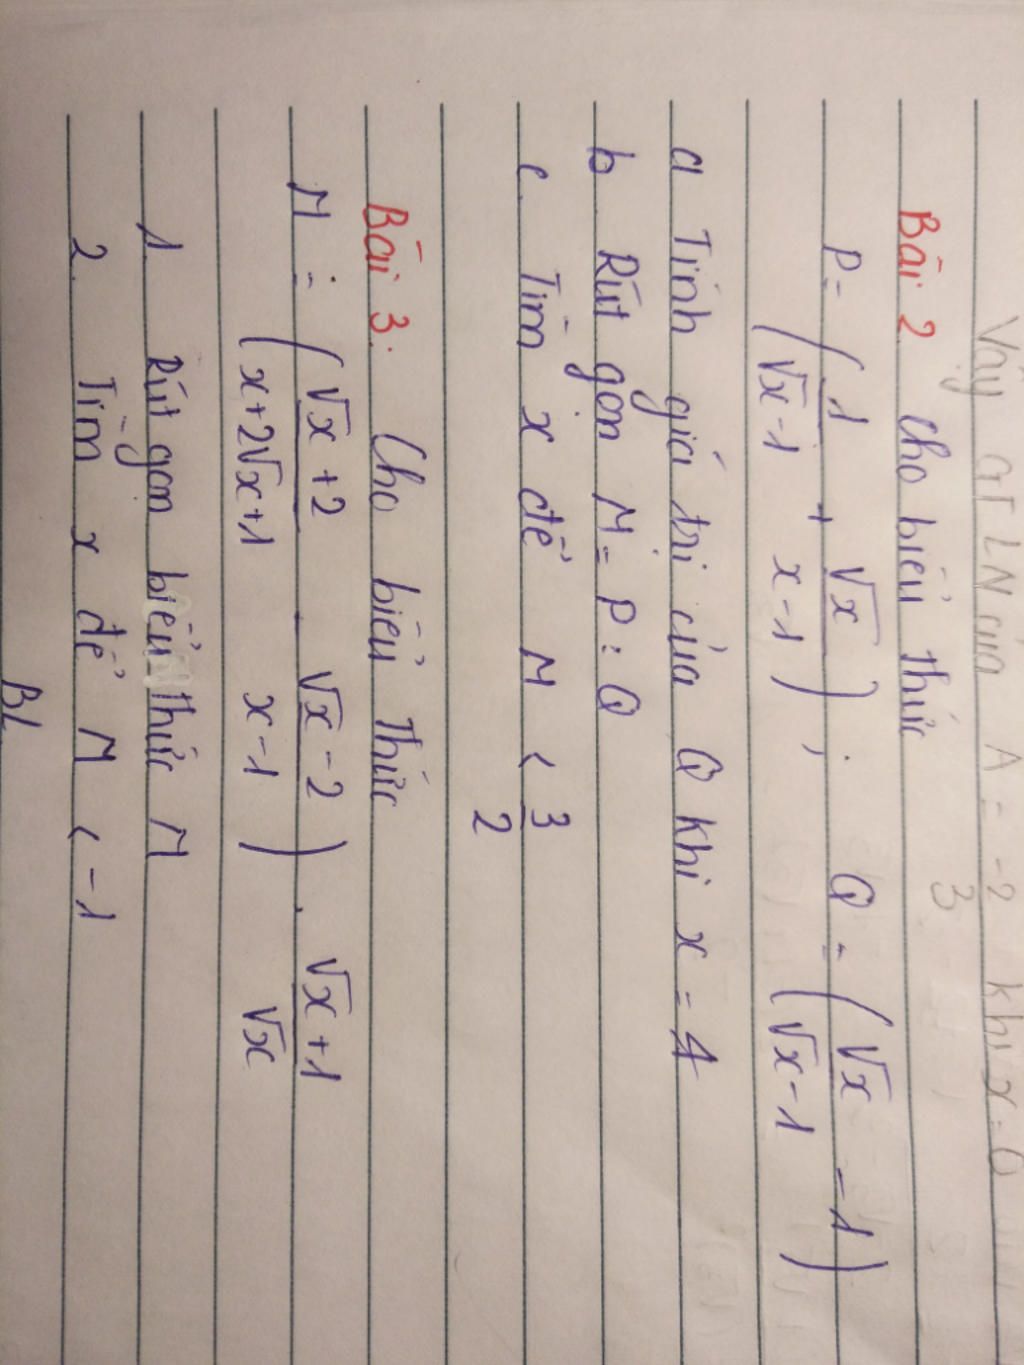 Vậy GTLN của A = -2/3 khi x = 0
Bài 2 Cho biểu thức
P = (1/(√x-1) + √x/(x-1)); Q = (√x/(√x-1) - 1)
a Tính giá trị của Q khi x = 4
b Rút gọn M = P : Q
c. Tìm x để M < 3/2
Bài 3: Cho biểu thức
M = ((√x+2)/(x+2√x+1) - (√x-2)/(x-1)) . (√x+1)/√x
1. Rút gọn biểu thức M
2. Tìm x để M < -1
BL